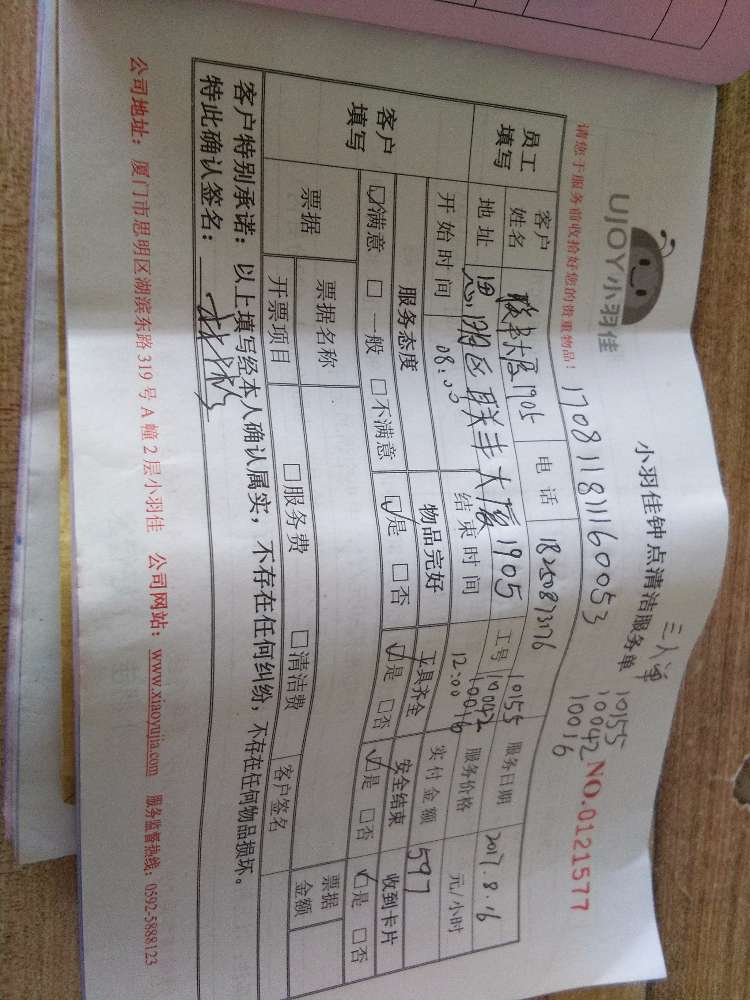 UJOY小羽佳
小羽佳钟点清洁服务单
三人单
10155
10042
10016
NO.0121577
请您于服务前收拾好您的贵重物品！
170811811160053
员工填写
客户姓名 联丰大厦1905 电话 18250873176 工号 10155 服务日期 2017.8.16
地址 思明区联丰大厦1905 10042 服务价格 元/小时
开始时间 08:00 结束时间 12:00 10016 实付金额 597
客户填写
服务态度 物品完好 工具齐全 安全结束 收到卡片
☑满意 □一般 □不满意 ☑是 □否 ☑是 □否 ☑是 □否 ☑是 □否
票据 票据名称 □服务费 □清洁费 客户签名 票据金额
开票项目
客户特别承诺：以上填写经本人确认属实，不存在任何纠纷，不存在任何物品损坏。
特此确认签名：
公司地址：厦门市思明区湖滨东路319号A幢2层小羽佳 公司网站：www.xiaoyujia.com 服务监督热线：0592-5888123